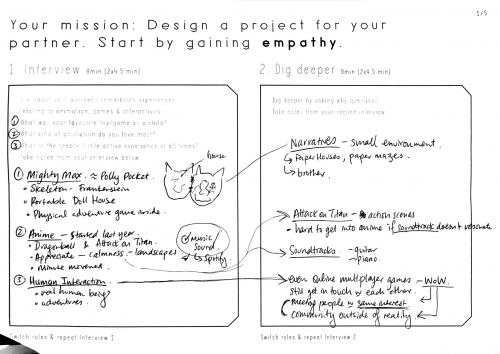 1/5
Your mission: Design a project for your
partner. Start by gaining empathy.
1 Interview 9min (2x4.5 min)
Ask about your partner's remarkable experiences
relating to animation, games & interactivity.
① What was your favourite toy/game as a child?
② What kind of animation do you love most?
③ What is the greatest interactive experience of all times?
Take notes from your interview below.
① Mighty Max. ≈ Polly Pocket.
• Skeleton - Frankenstein
• Portable Doll House
• Physical adventure game inside.
house
② Anime - Started last year.
• Dragonball & Attack on Titan.
• Appreciate - calmness - landscapes
• minute movement.
music/
sound.
↳ Spotify
③ Human Interaction.
• real human being
• adventures.
Switch roles & repeat Interview 1
2. Dig deeper 9min (2x4.5 min)
Dig deeper by asking why-questions.
Take notes from your second interview.
Narratives - small environment.
↳ Paper Houses, paper mazes.
↳ brother.
Attack on Titan - action scenes
• hard to get into anime if soundtrack doesn't resonate
Soundtracks - guitar
- piano.
even Online multiplayer games - WoW.
Still get in touch w each other.
meeting people w same interest.
community outside of reality
Switch roles & repeat Interview 2